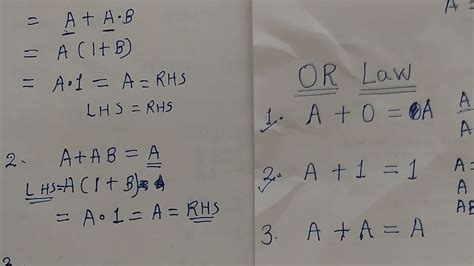 = A + A·B
= A (1+B)
= A·1 = A = RHS
LHS = RHS
2. A + AB = A
LHS = A (1 + B)
= A·1 = A = RHS
OR Law
1. A + 0 = A
2. A + 1 = 1
3. A + A = A
A =
A
A
A =
A
AB